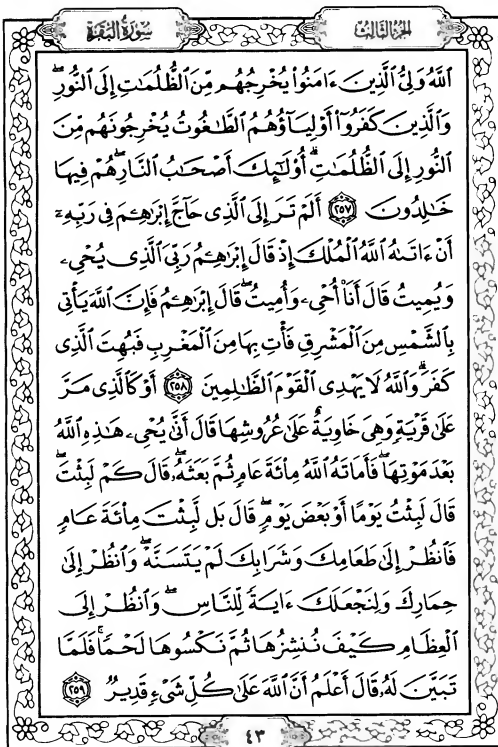 سُورَةُ البَقَرَةِ
الجُزءُ الثَّالِثُ
ٱللَّهُ وَلِىُّ ٱلَّذِينَ ءَامَنُوا۟ يُخْرِجُهُم مِّنَ ٱلظُّلُمَٰتِ إِلَى ٱلنُّورِ ۖ
وَٱلَّذِينَ كَفَرُوٓا۟ أَوْلِيَآؤُهُمُ ٱلطَّٰغُوتُ يُخْرِجُونَهُم مِّنَ
ٱلنُّورِ إِلَى ٱلظُّلُمَٰتِ ۗ أُو۟لَٰٓئِكَ أَصْحَٰبُ ٱلنَّارِ ۖ هُمْ فِيهَا
خَٰلِدُونَ ٢٥٧ أَلَمْ تَرَ إِلَى ٱلَّذِى حَآجَّ إِبْرَٰهِۦمَ فِى رَبِّهِۦٓ
أَنْ ءَاتَىٰهُ ٱللَّهُ ٱلْمُلْكَ إِذْ قَالَ إِبْرَٰهِۦمُ رَبِّىَ ٱلَّذِى يُحْىِۦ
وَيُمِيتُ قَالَ أَنَا۠ أُحْىِۦ وَأُمِيتُ ۖ قَالَ إِبْرَٰهِۦمُ فَإِنَّ ٱللَّهَ يَأْتِى
بِٱلشَّمْسِ مِنَ ٱلْمَشْرِقِ فَأْتِ بِهَا مِنَ ٱلْمَغْرِبِ فَبُهِتَ ٱلَّذِى
كَفَرَ ۗ وَٱللَّهُ لَا يَهْدِى ٱلْقَوْمَ ٱلظَّٰلِمِينَ ٢٥٨ أَوْ كَٱلَّذِى مَرَّ
عَلَىٰ قَرْيَةٍ وَهِىَ خَاوِيَةٌ عَلَىٰ عُرُوشِهَا قَالَ أَنَّىٰ يُحْىِۦ هَٰذِهِ ٱللَّهُ
بَعْدَ مَوْتِهَا ۖ فَأَمَاتَهُ ٱللَّهُ مِا۟ئَةَ عَامٍ ثُمَّ بَعَثَهُۥ ۖ قَالَ كَمْ لَبِثْتَ ۖ
قَالَ لَبِثْتُ يَوْمًا أَوْ بَعْضَ يَوْمٍ ۖ قَالَ بَل لَّبِثْتَ مِا۟ئَةَ عَامٍ
فَٱنظُرْ إِلَىٰ طَعَامِكَ وَشَرَابِكَ لَمْ يَتَسَنَّهْ ۖ وَٱنظُرْ إِلَىٰ
حِمَارِكَ وَلِنَجْعَلَكَ ءَايَةً لِّلنَّاسِ ۖ وَٱنظُرْ إِلَى
ٱلْعِظَامِ كَيْفَ نُنشِزُهَا ثُمَّ نَكْسُوهَا لَحْمًا ۚ فَلَمَّا
تَبَيَّنَ لَهُۥ قَالَ أَعْلَمُ أَنَّ ٱللَّهَ عَلَىٰ كُلِّ شَىْءٍ قَدِيرٌ ٢٥٩
٤٣